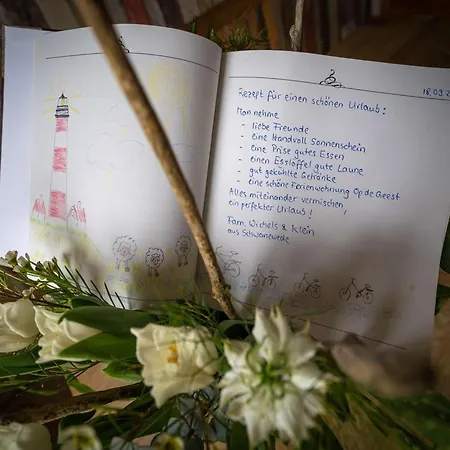 18.09.2
Rezept für einen schönen Urlaub:
Man nehme
- liebe Freunde
- eine Handvoll Sonnenschein
- eine Prise gutes Essen
- einen Esslöffel gute Laune
- gut gekühlte Getränke
- eine schöne Ferienwohnung Op de Geest
Alles miteinander vermischen,
ein perfekter Urlaub!
Fam. Wichels & Klein
aus Schwanewede